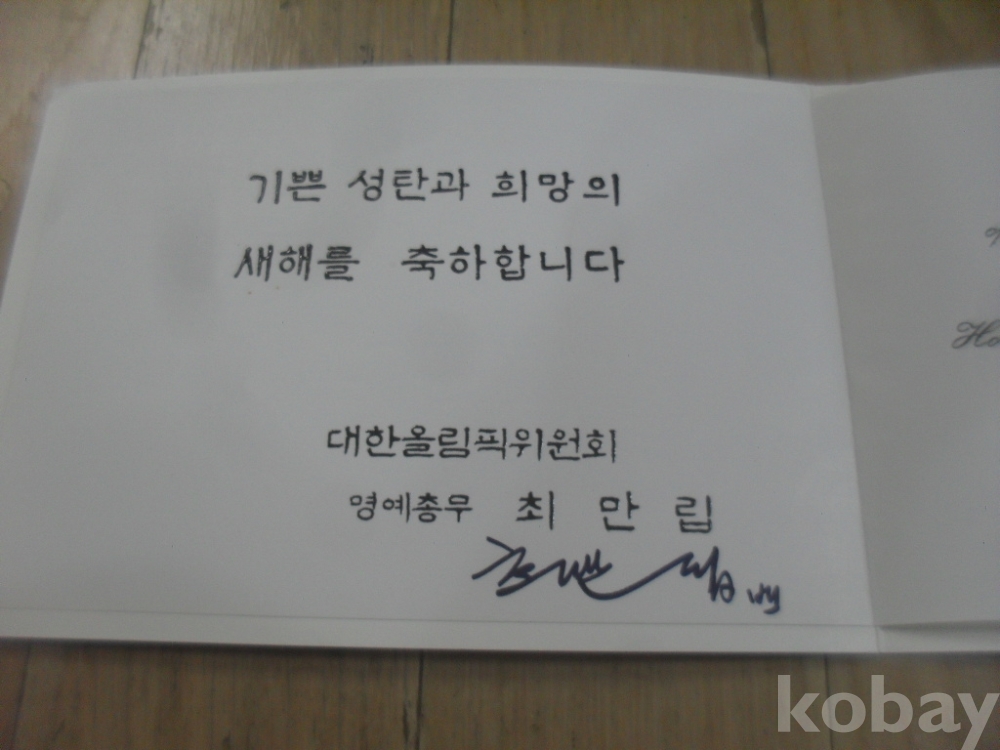 기쁜 성탄과 희망의
새해를 축하합니다
대한올림픽위원회
명예총무 최 만 립
kobay